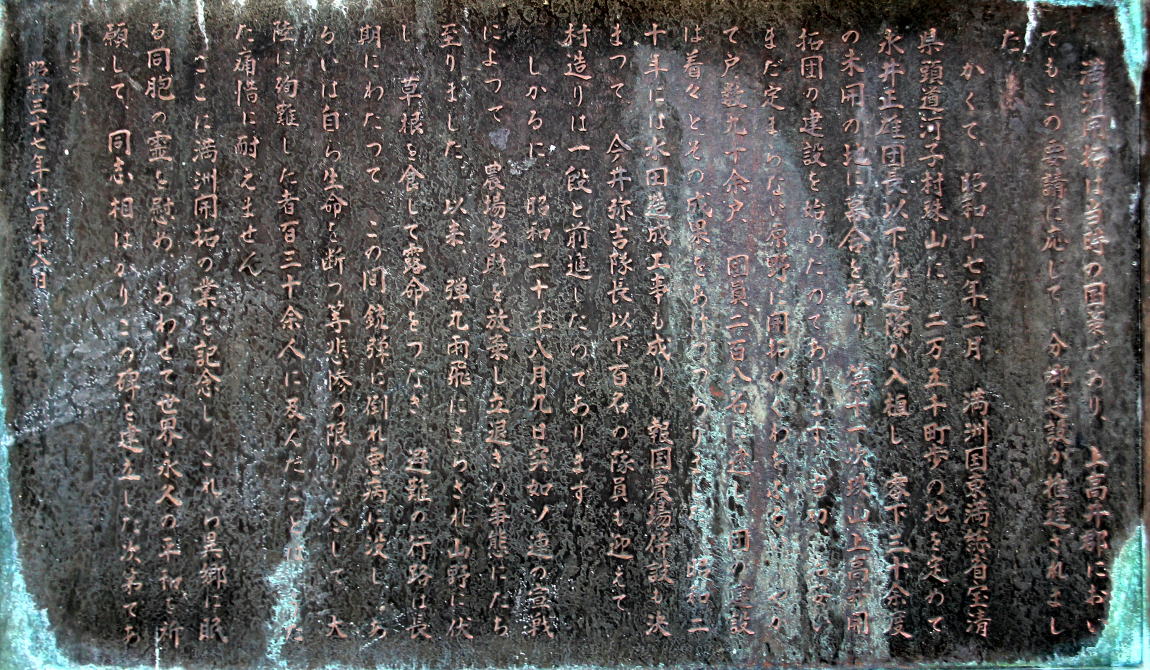 満洲開拓は当時の国策であり、上高井郡におい
てもこの要請に応じて、分郷建設が推進されまし
た。
かくて、昭和十七年二月 満洲国東満総省宝清
県頭道河子村珠山に、二万五千町歩の地を定めて
永井正雄団長以下先遣隊が入植し 零下三十余度
の未開の地に幕舎を張り 第十一次珠山上高井開
拓団の建設を始めたのであります 当初
まだ定まらない原野に開拓のくわを
て戸数九十余戸 団員二百八名に達し 団の建設
は着々とその成果をあげつつありました 昭和二
十年には水田造成工事も成り 報国農場併設も決
まって、今井弥吉隊長以下百名の隊員も迎えて
村造りは一段と前進したのであります
しかるに 昭和二十年八月九日突如ソ連の宣戦
によって 農場家財を放棄し立退きの事態にたち
至りました 以来、弾丸雨飛にさらされ山野に伏
し 草根を食して露命をつなぎ 避難の行路は長
期にわたって この間銃弾に倒れ悪病に没し あ
るいは自ら生命を断つ等悲惨の限りを尽して 大
陸に殉難した者百三十余人に及んだことは
た痛惜に耐えません
ここに満洲開拓の業を記念し これら異郷に眠
る同胞の霊を慰め、あわせて世界永久の平和を祈
願して、同志相はかりこの碑を建立した次第であ
ります
昭和三十七年十一月十八日